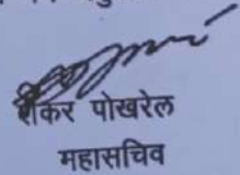 शंकर पोखरेल
महासचिव